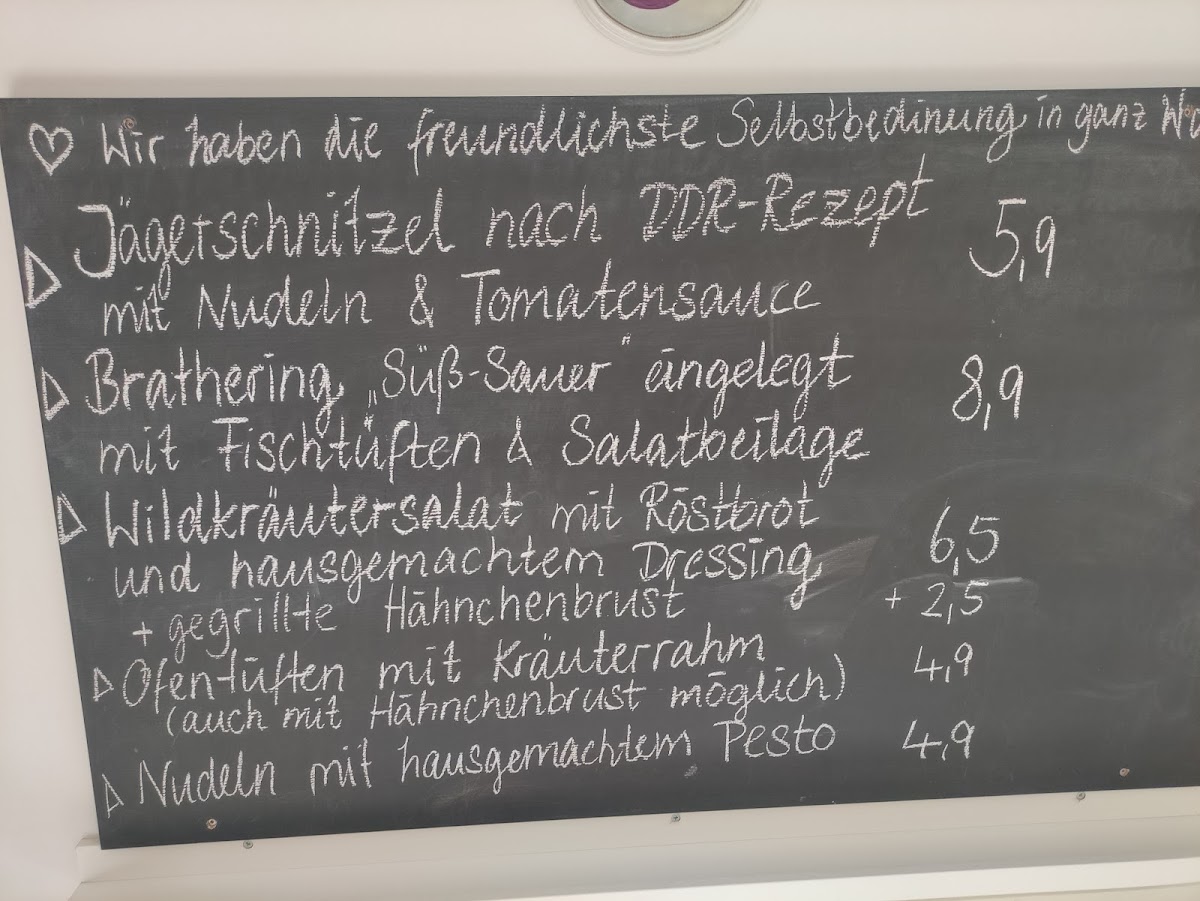 Wir haben die freundlichste Selbstbedinung in ganz
Jägerschnitzel nach DDR-Rezept 5,9
mit Nudeln & Tomatensauce
Brathering „Süß-Sauer" eingelegt 8,9
mit Fischtüften & Salatbeilage
Wildkräutersalat mit Röstbrot 6,5
und hausgemachtem Dressing
+ gegrillte Hähnchenbrust + 2,5
Ofentüften mit Kräuterrahm 4,9
(auch mit Hähnchenbrust möglich)
Nudeln mit hausgemachtem Pesto 4,9